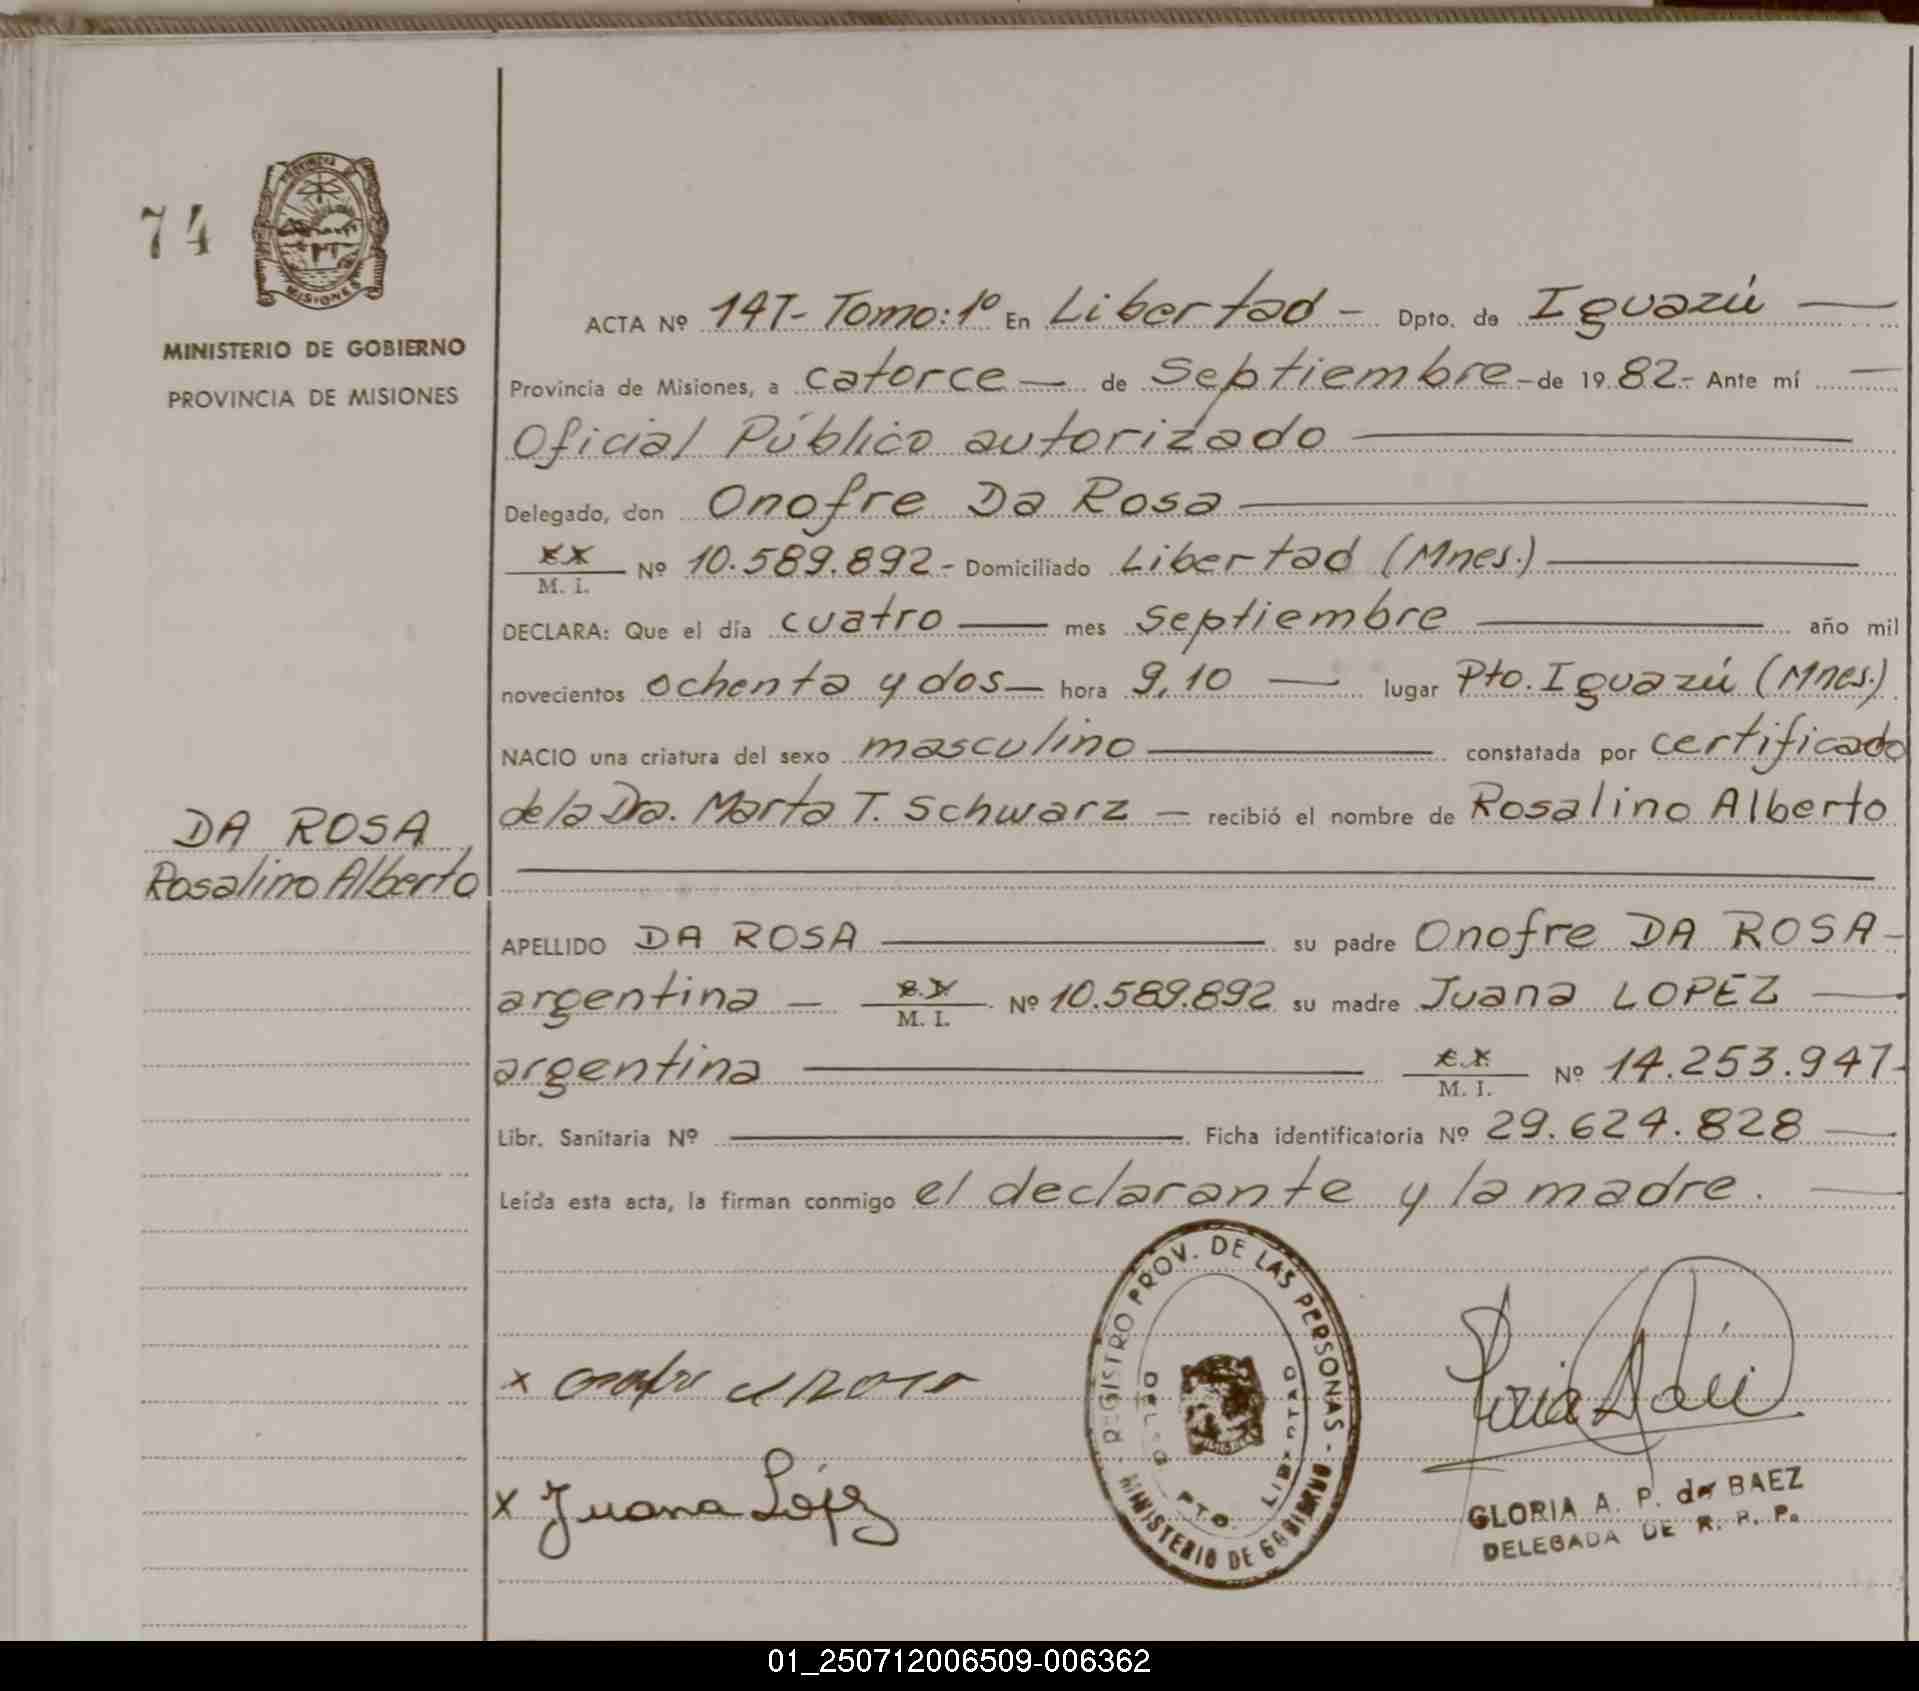 74
PROVINCIA DE
MISIONES
MINISTERIO DE GOBIERNO
PROVINCIA DE MISIONES
ACTA Nº 147- Tomo: 1º En Libertad - Dpto. de Iguazú
Provincia de Misiones, a catorce de Septiembre - de 19 82.- Ante mí
Oficial Público autorizado
Delegado, don Onofre Da Rosa
M. I. Nº 10.589.892- Domiciliado Libertad (Mnes.)
DECLARA: Que el día cuatro mes septiembre año mil
novecientos ochenta y dos hora 9,10 lugar Pto. Iguazú (Mnes.)
NACIO una criatura del sexo masculino constatada por certificado
de la Dra. Marta T. Schwarz recibió el nombre de Rosalino Alberto
DA ROSA
Rosalino Alberto
APELLIDO DA ROSA su padre Onofre DA ROSA-
argentina - M. I. Nº 10.589.892 su madre Juana LOPEZ
argentina M. I. Nº 14.253.947-
Libr. Sanitaria Nº Ficha identificatoria Nº 29.624.828
Leída esta acta, la firman conmigo el declarante y la madre.
REGISTRO PROV. DE LAS PERSONAS - MINISTERIO DE GOBIERNO -
PTO. LIBERTAD
x
x Juana López
GLORIA A. P. de BAEZ
DELEGADA DE R. P. P.
01_250712006509-006362